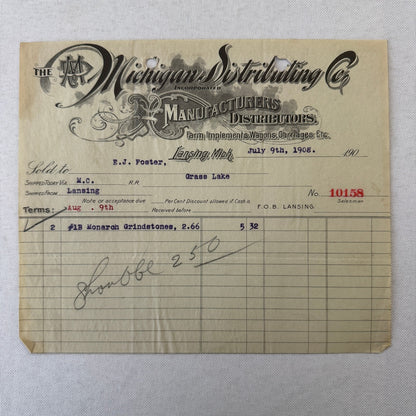 THE Michigan Distributing Co.
INCORPORATED
MANUFACTURERS
DISTRIBUTORS.
Farm Implements, Wagons, Carriages, Etc.
Lansing, Mich. July 9th, 1908. 190
Sold to E.J. Foster, Grass Lake
SHIPPED TODAY VIA M.C. R.R.
SHIPPED FROM Lansing No. 10158
Note or acceptance due Per Cent Discount allowed if Cash is Salesman
Terms: Aug. 9th Received before F.O.B. LANSING
2 #1B Monarch Grindstones, 2.66 5 32
250